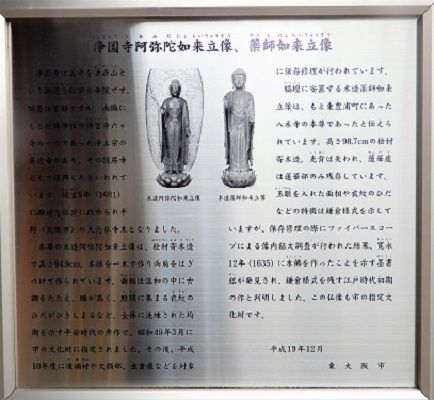 浄国寺阿弥陀如来立像、薬師如来立像
浄国寺は山号を
融通念仏宗の寺院です。
ます。延宝9年(1681)
に融通念仏宗に改められ平
野(大阪市)の大念仏寺末となりました。
本尊の木造阿弥陀如来立像は、桧材寄木造
で高さ94.9cm、本体を一木で作り両肩をはぎ
つけて作られています。面相は温和の中に古
調をたたえ、膝が高く、股間に集まる衣紋の
ひだがひきしまるなど、全体に洗練された均
衡を示す平安時代の秀作で、昭和49年3月に
市の文化財に指定されました。その後、平成
10年度に後補材や欠損部、虫食痕などを対象
木造阿弥陀如来立像
木造薬師如来立像
に保存修理が行われています。
脇壇に安置する木造薬師如来
立像は、もと東豊浦町にあった
八木寺の本尊であったと伝えら
れています。高さ98.7cmの桧材
寄木造。光背は失われ、蓮華座
は蓮華部のみ残存しています。
玉眼を入れた面相や衣紋のひだ
などの特徴は鎌倉様式を示して
いますが、保存修理の際にファイバースコー
プによる像内銘文調査が行われた結果、寛永
12年(1635)に木佛を作ったことを示す墨書
銘が発見され、鎌倉様式を残す江戸時代初期
の作と判明しました。この仏像も市の指定文
化財です。
平成19年12月
東大阪市